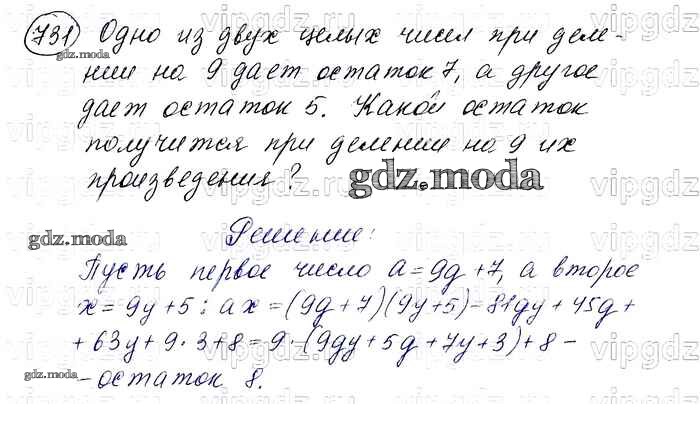 731 Одно из двух целых чисел при деле-
нии на 9 дает остаток 7, а другое
дает остаток 5. Какой остаток
получится при делении на 9 их
произведения?
gdz.moda
gdz.moda
gdz.moda
Решение:
Пусть первое число a=9g+7, а второе
x=9y+5; ax=(9g+7)(9y+5)=81gy+45g+
+63y+9·3+8=9·(9gy+5g+7y+3)+8-
-остаток 8.
gdz.moda
vipgdz.ru